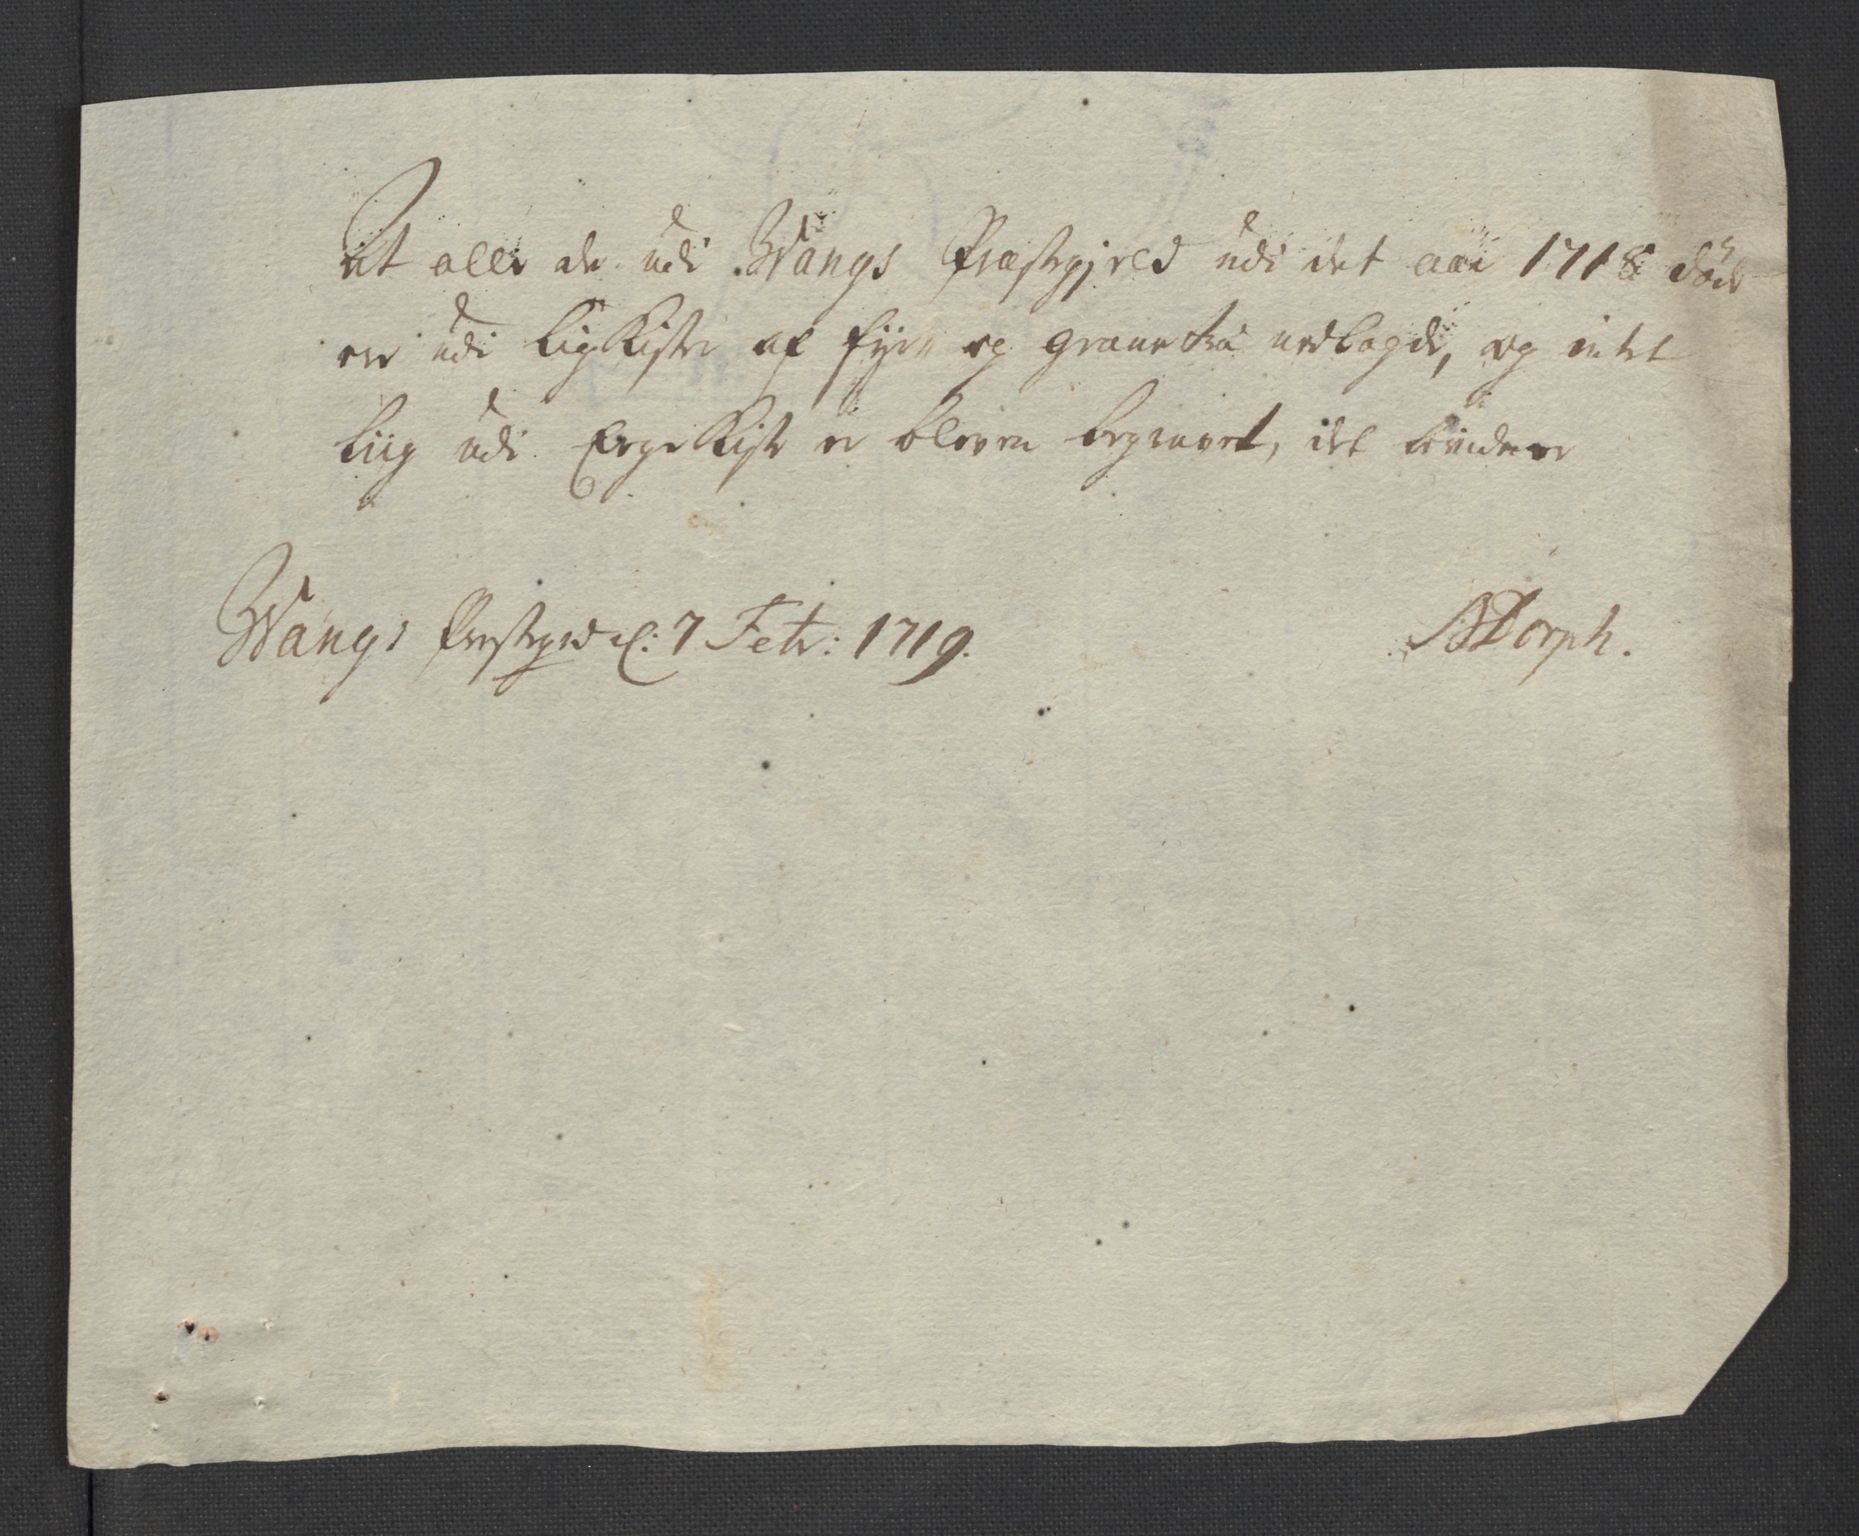 At alle de udi Wangs Præstegjeld udi det aar 1718 døde
ere udi Ligkiste af fyre og grane træ nedlagde, og intet
Liig udi Eege Kiste er bleven begravet, det bevidner
Wangs Præstegrd d: 7 Febr: 1719.
ADorph.